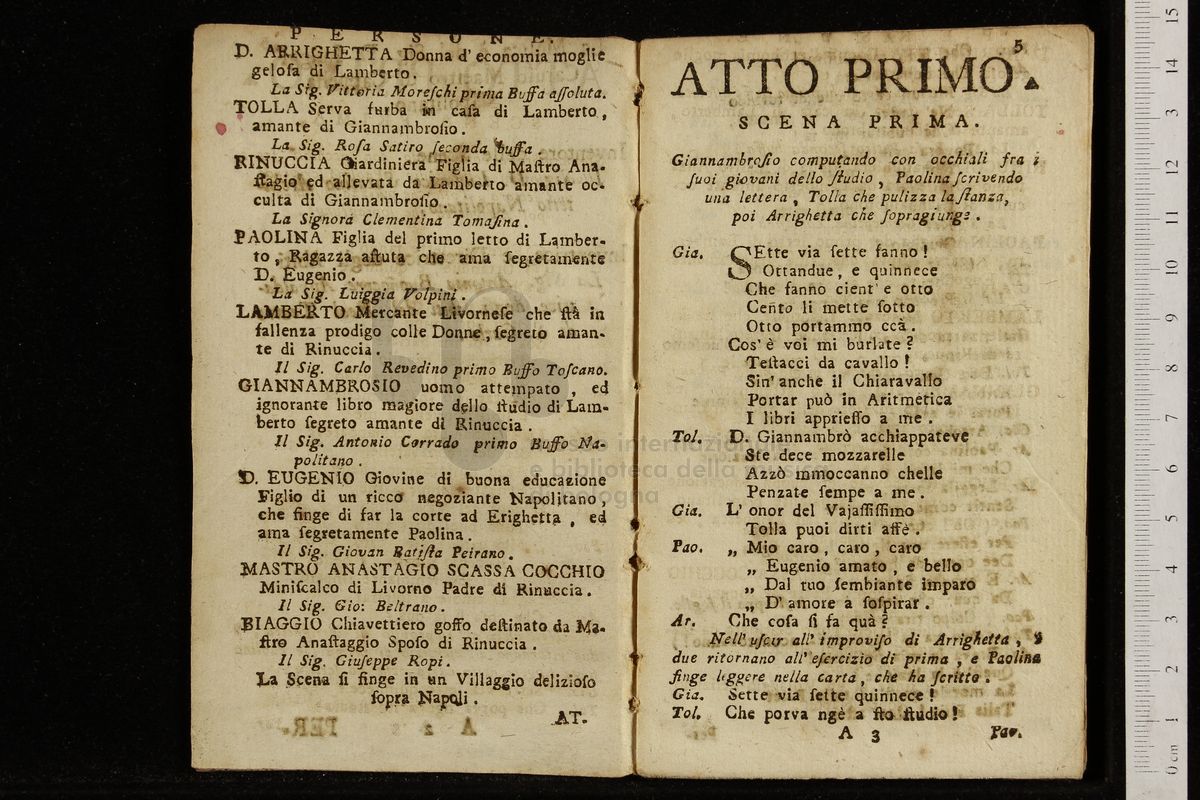 PERSONE.
D. ARRIGHETTA Donna d' economia moglie
geloſa di Lamberto.
La Sig. Vittoria Moreſchi prima Buffa aſſoluta.
TOLLA Serva furba in caſa di Lamberto,
amante di Giannambroſio.
La Sig. Roſa Satiro ſeconda buffa.
RINUCCIA Giardiniera Figlia di Maſtro Ana-
ſtagio ed allevata da Lamberto amante oc-
culta di Giannambroſio.
La Signora Clementina Tomaſina.
PAOLINA Figlia del primo letto di Lamber-
to, Ragazza aſtuta che ama ſegretamente
D. Eugenio.
La Sig. Luiggia Volpini.
LAMBERTO Mercante Livorneſe che ſtà in
fallenza prodigo colle Donne, ſegreto aman-
te di Rinuccia.
Il Sig. Carlo Revedino primo Buffo Toſcano.
GIANNAMBROSIO uomo attempato, ed
ignorante libro magiore dello ſtudio di Lam-
berto ſegreto amante di Rinuccia.
Il Sig. Antonio Corrado primo Buffo Na-
politano.
D. EUGENIO Giovine di buona educazione
Figlio di un ricco negoziante Napolitano,
che finge di far la corte ad Erighetta, ed
ama ſegretamente Paolina.
Il Sig. Giovan Batiſta Peirano.
MASTRO ANASTAGIO SCASSA COCCHIO
Miniſcalco di Livorno Padre di Rinuccia.
Il Sig. Gio: Beltrano.
BIAGGIO Chiavettiero goffo deſtinato da Ma-
ſtro Anaſtaggio Spoſo di Rinuccia.
Il Sig. Giuſeppe Ropi.
La Scena ſi finge in un Villaggio delizioſo
ſopra Napoli.
AT-
5
ATTO PRIMO.
SCENA PRIMA.
Giannambroſio computando con occhiali fra i
ſuoi giovani dello ſtudio, Paolina ſcrivendo
una lettera, Tolla che pulizza la ſtanza,
poi Arrighetta che ſopragiunge.
Gia. SEtte via ſette fanno!
Ottandue, e quinnece
Che fanno cient' e otto
Cento li mette ſotto
Otto portammo ccà.
Cos' è voi mi burlate?
Teſtacci da cavallo!
Sin' anche il Chiaravallo
Portar può in Aritmetica
I libri apprieſſo a me.
Tol. D. Giannambrò acchiappateve
Ste dece mozzarelle
Azzò mmoccanno chelle
Penzate ſempe a me.
Gia. L' onor del Vajaſſiſſimo
Tolla puoi dirti affè.
Pao. „ Mio caro, caro, caro
„ Eugenio amato, e bello
„ Dal tuo ſembiante imparo
„ D' amore a ſoſpirar.
Ar. Che coſa ſi fa quà?
Nell' uſcir all' improviſo di Arrighetta, i
due ritornano all' eſercizio di prima, e Paolina
finge leggere nella carta, che ha ſcritto.
Gia. Sette via ſette quinnece!
Tol. Che porva ngè a ſto ſtudio!
A 3 Pao.
museo internazionale
e biblioteca della musica